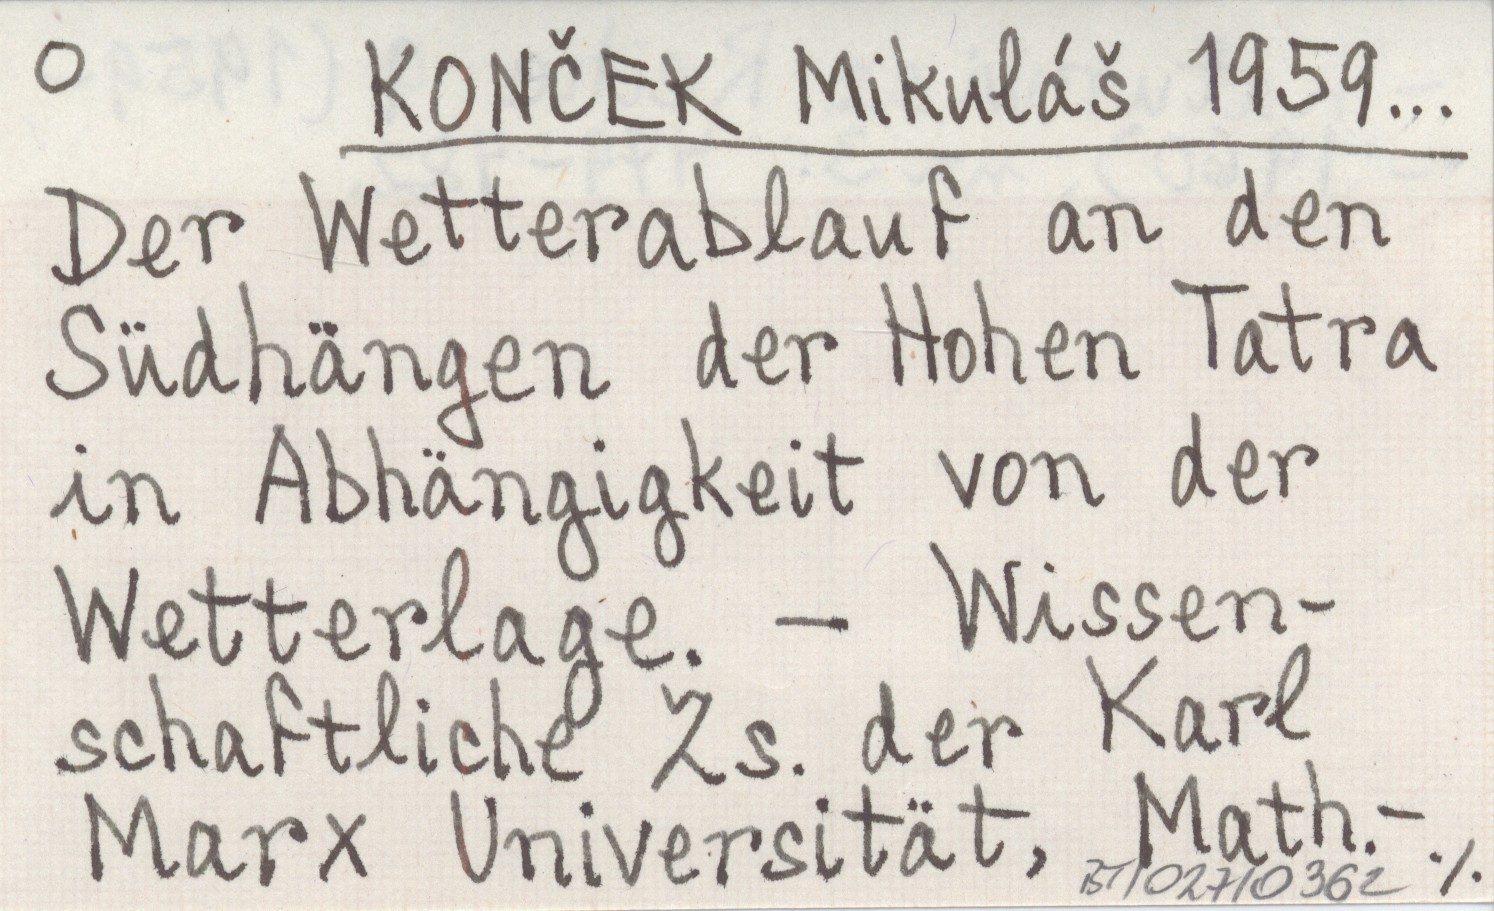 O KONČEK Mikuláš 1959...
Der Wetterablauf an den
Südhängen der Hohen Tatra
in Abhängigkeit von der
Wetterlage. – Wissen-
schaftliche Zs. der Karl
Marx Universität, Math.-
BT/027/0362 ./.